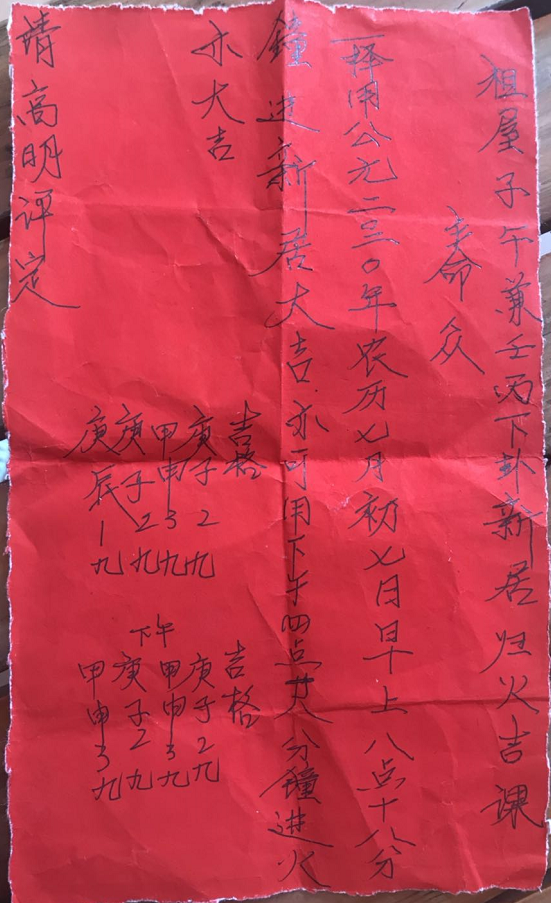 祖屋子午兼壬丙下卦新居归火吉课
主命众
一择用公元二三〇年农历七月初七日早上八点十八分
鐘进新居大吉亦可用下午四点廿八分鐘进火
亦大吉
吉格
庚子2九
甲申3九
庚子2九
庚辰1九
吉格
庚子2九
甲申3九
下午
庚子2九
甲申3九
请高明评定